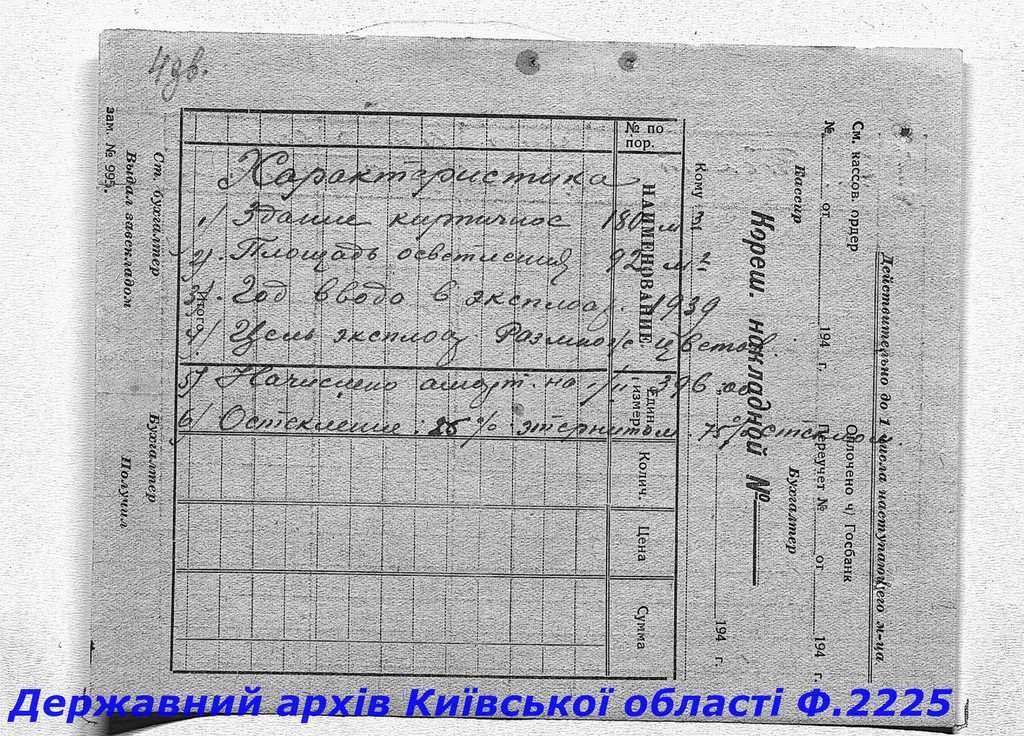 4 дв.
Характеристика
1/ Здание кирпичное 180 м³
2/. Площадь 92 м²
3/. Год ввода в эксплоа. 1939
4/ Цель эксплоа. Размнож. цветов.
5/ Начислено аморт. на 396
6/ Остекление: 25% этернитом. 75% стеклом.
Действительно до 1 числа наступающего м-ца
См. кассов. ордер Оплочено ч/ Госбанк
№ от 194 г. Переучет № от 194 г.
Кассир Бухгалтер
Кореш. накладной №
Кому 194 г.
№ по пор.
НАИМЕНОВАНИЕ
Един. измер.
Колич.
Цена
Сумма
Итого
Ст. бухгалтер Бухгалтер
Выдал завскладом Получил
зам. № 995.
Державний архів Київської області Ф.2225